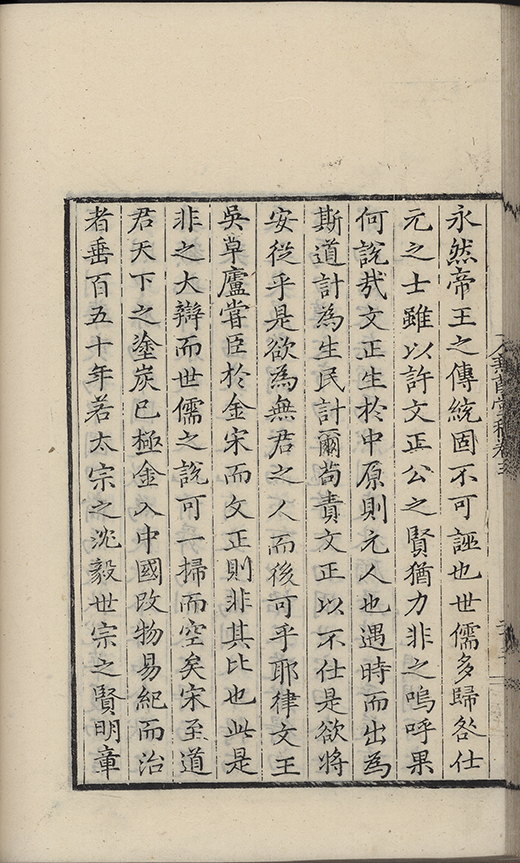 永然帝王之傳統固不可誣也世儒多歸咎仕
元之士雖以許文正公之賢猶力非之嗚呼果
何說哉文正生於中原則元人也遇時而出為
斯道計為生民計爾苟責文正以不仕是欲將
安從乎是欲為無君之人而後可乎耶律文王
吳草廬嘗臣於金宋而文正則非其比也此是
非之大辯而世儒之說可一掃而空矣宋至道
君天下之塗炭已極金入中國改物易紀而治
者垂百五十年若太宗之沈毅世宗之賢明章